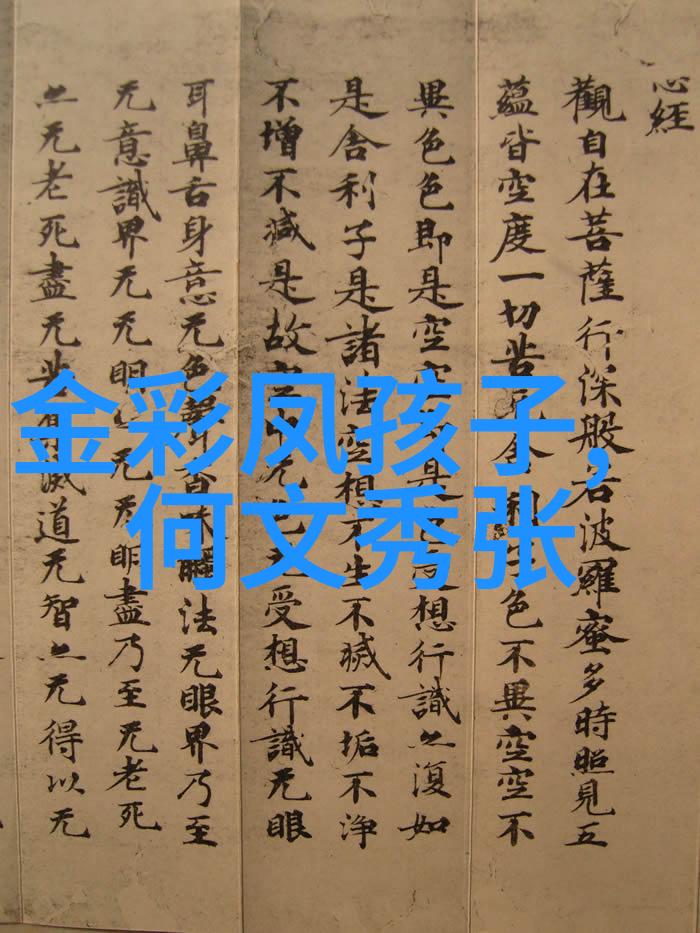 心經
觀自在菩薩行深般若波羅蜜多時照見五
蘊皆空度一切苦厄舍利子色不異空空不
異色色即是空空即是色受想行識亦復如
是舍利子是諸法空想不生不滅不垢不淨
不增不減是故空中无色无受想行識无眼
耳鼻舌身意无色聲香味觸法无眼界乃至
无意識界无无明亦无无明盡乃至无老死
亦无老死盡无苦集滅道无智亦无得以无
金彩凤孩子,
何文秀张